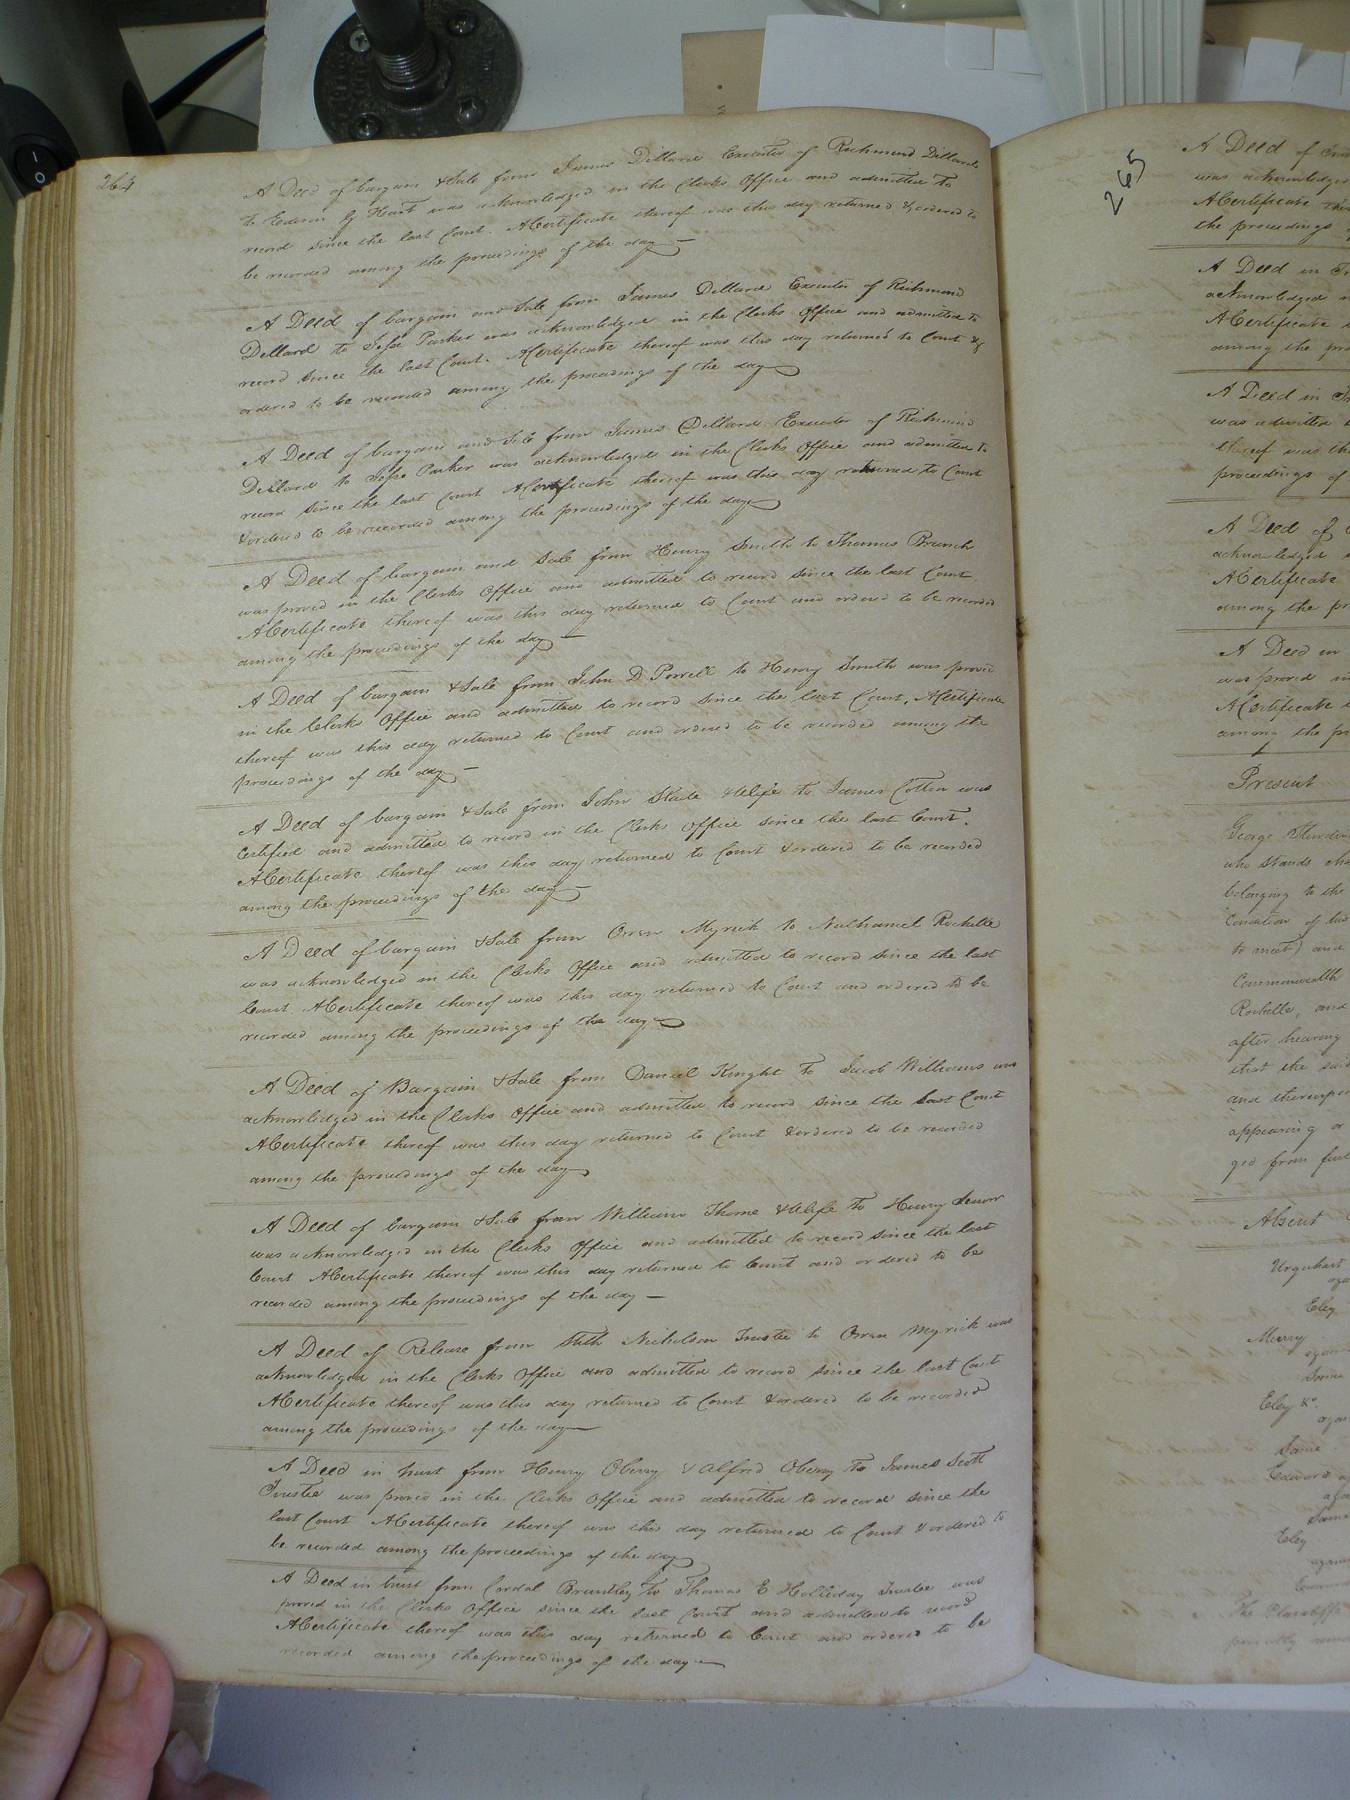 264
A Deed of bargain & Sale from James Dillard Executor of Richmond Dillard
to Edwin G Hart was acknowledged in the Clerks Office and admitted to
record since the last Court. A Certificate thereof was this day returned & ordered to
be recorded among the proceedings of the day
A Deed of bargain and Sale from James Dillard Executor of Richmond
Dillard to Jesse Parker was acknowledged in the Clerks Office and admitted to
record since the last Court. A Certificate thereof was this day returned to Court &
ordered to be recorded among the proceedings of the day
A Deed of bargain and Sale from James Dillard Executor of Richmond
Dillard to Jesse Parker was acknowledged in the Clerks Office and admitted to
record since the last Court A Certificate thereof was this day returned to Court
& ordered to be recorded among the proceedings of the day
A Deed of bargain and Sale from Henry Smith to Thomas Branch
was proved in the Clerks Office and admitted to record since the last Court.
A Certificate thereof was this day returned to Court and ordered to be recorded
among the proceedings of the day
A Deed of bargain & Sale from John D Powell to Henry Smith was proved
in the Clerks Office and admitted to record since the last Court. A Certificate
thereof was this day returned to Court and ordered to be recorded among the
proceedings of the day
A Deed of bargain & Sale from John Slade & Wife to James Cotton was
Certified and admitted to record in the Clerks Office since the last Court.
A Certificate thereof was this day returned to Court & ordered to be recorded
among the proceedings of the day
A Deed of bargain & Sale from Owen Myrick to Nathaniel Rochelle
was acknowledged in the Clerks Office and admitted to record since the last
Court A Certificate thereof was this day returned to Court and ordered to be
recorded among the proceedings of the day
A Deed of Bargain & Sale from Daniel Knight to Jacob Williams was
acknowledged in the Clerks Office and admitted to record since the last Court
A Certificate thereof was this day returned to Court & ordered to be recorded
among the proceedings of the day
A Deed of bargain & Sale from William Thorne & Wife to Henry
was acknowledged in the Clerks Office and admitted to record since the last
Court A Certificate thereof was this day returned to Court and ordered to be
recorded among the proceedings of the day
A Deed of Release from Nicholson Trustee to Owen Myrick was
acknowledged in the Clerks Office and admitted to record since the last Court
A Certificate thereof was this day returned to Court & ordered to be recorded
among the proceedings of the day
A Deed in trust from Henry Oberry & Alfred Oberry to James Scott
Trustee was proved in the Clerks Office and admitted to record since the
last Court A Certificate thereof was this day returned to Court & ordered to
be recorded among the proceedings of the day
A Deed in trust from Cordal Brantley to Thomas E Holleday Trustee was
proved in the Clerks Office since the last Court and admitted to record
A Certificate thereof was this day returned to Court and ordered to be
recorded among the proceedings of the day
265
A Deed of
was acknowledged
A Certificate
the proceedings
A Deed in
acknowledged
A Certificate
among the
A Deed in
was admitted
thereof was
proceedings of
A Deed of
acknowledged
A Certificate
among the
A Deed in
was proved
A Certificate
among the
Present
George
who stands
belonging to the
to meet) and
Commonwealth
Rochelle, and
after hearing
that the said
and thereupon
appearing or
ged from
Absent
Urquhart
Eley
Murry
Same
Eley &c.
Same
Edward
Same
Eley
The Plaintiff